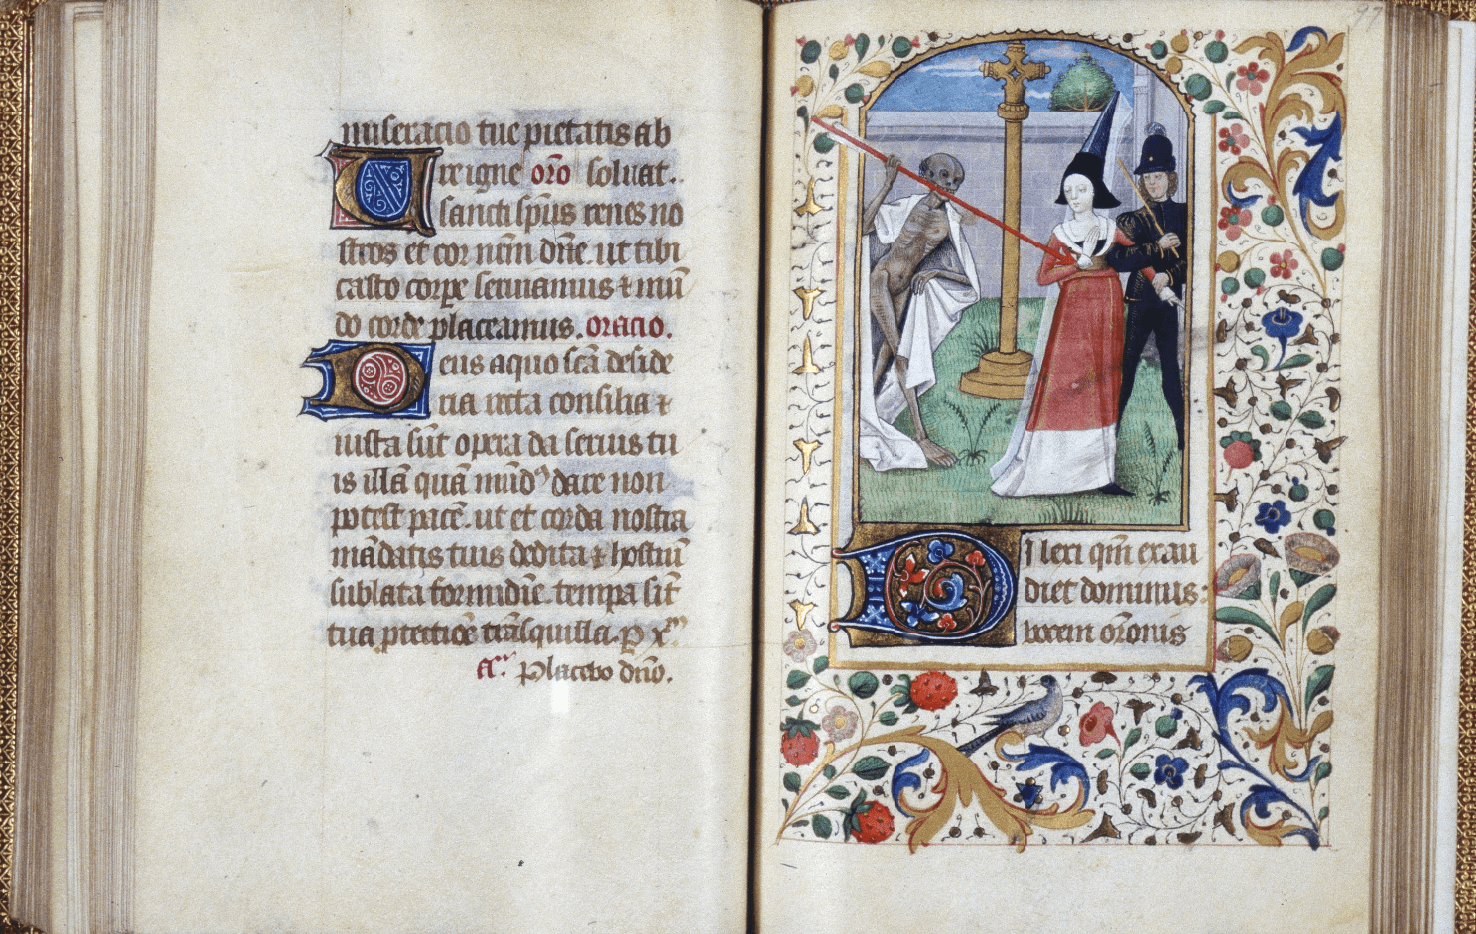 miseracio tue pietatis ab
Ure igne orō soluat.
sancti sp̄us renes no
stros et cor nr̄m dn̄e ut tibi
casto corꝑe seruiamus ⁊ mū
do corde placeamus. oracio.
Deus a quo sc̄a deside
ria recta consilia ⁊
iusta sūt opera da seruis tu
is illā quā mūdꝰ dare non
potest pacē. ut et corda nostra
mādatis tuis dedita ⁊ hostiū
sublata formidīe tempa sīt
tua ꝓtectiōe trāsquilla. ꝑ xᵐ
aᵃ Placebo dn̄o.
97
Dilexi qm̄ exau
diet dominus:
vocem or̄onis